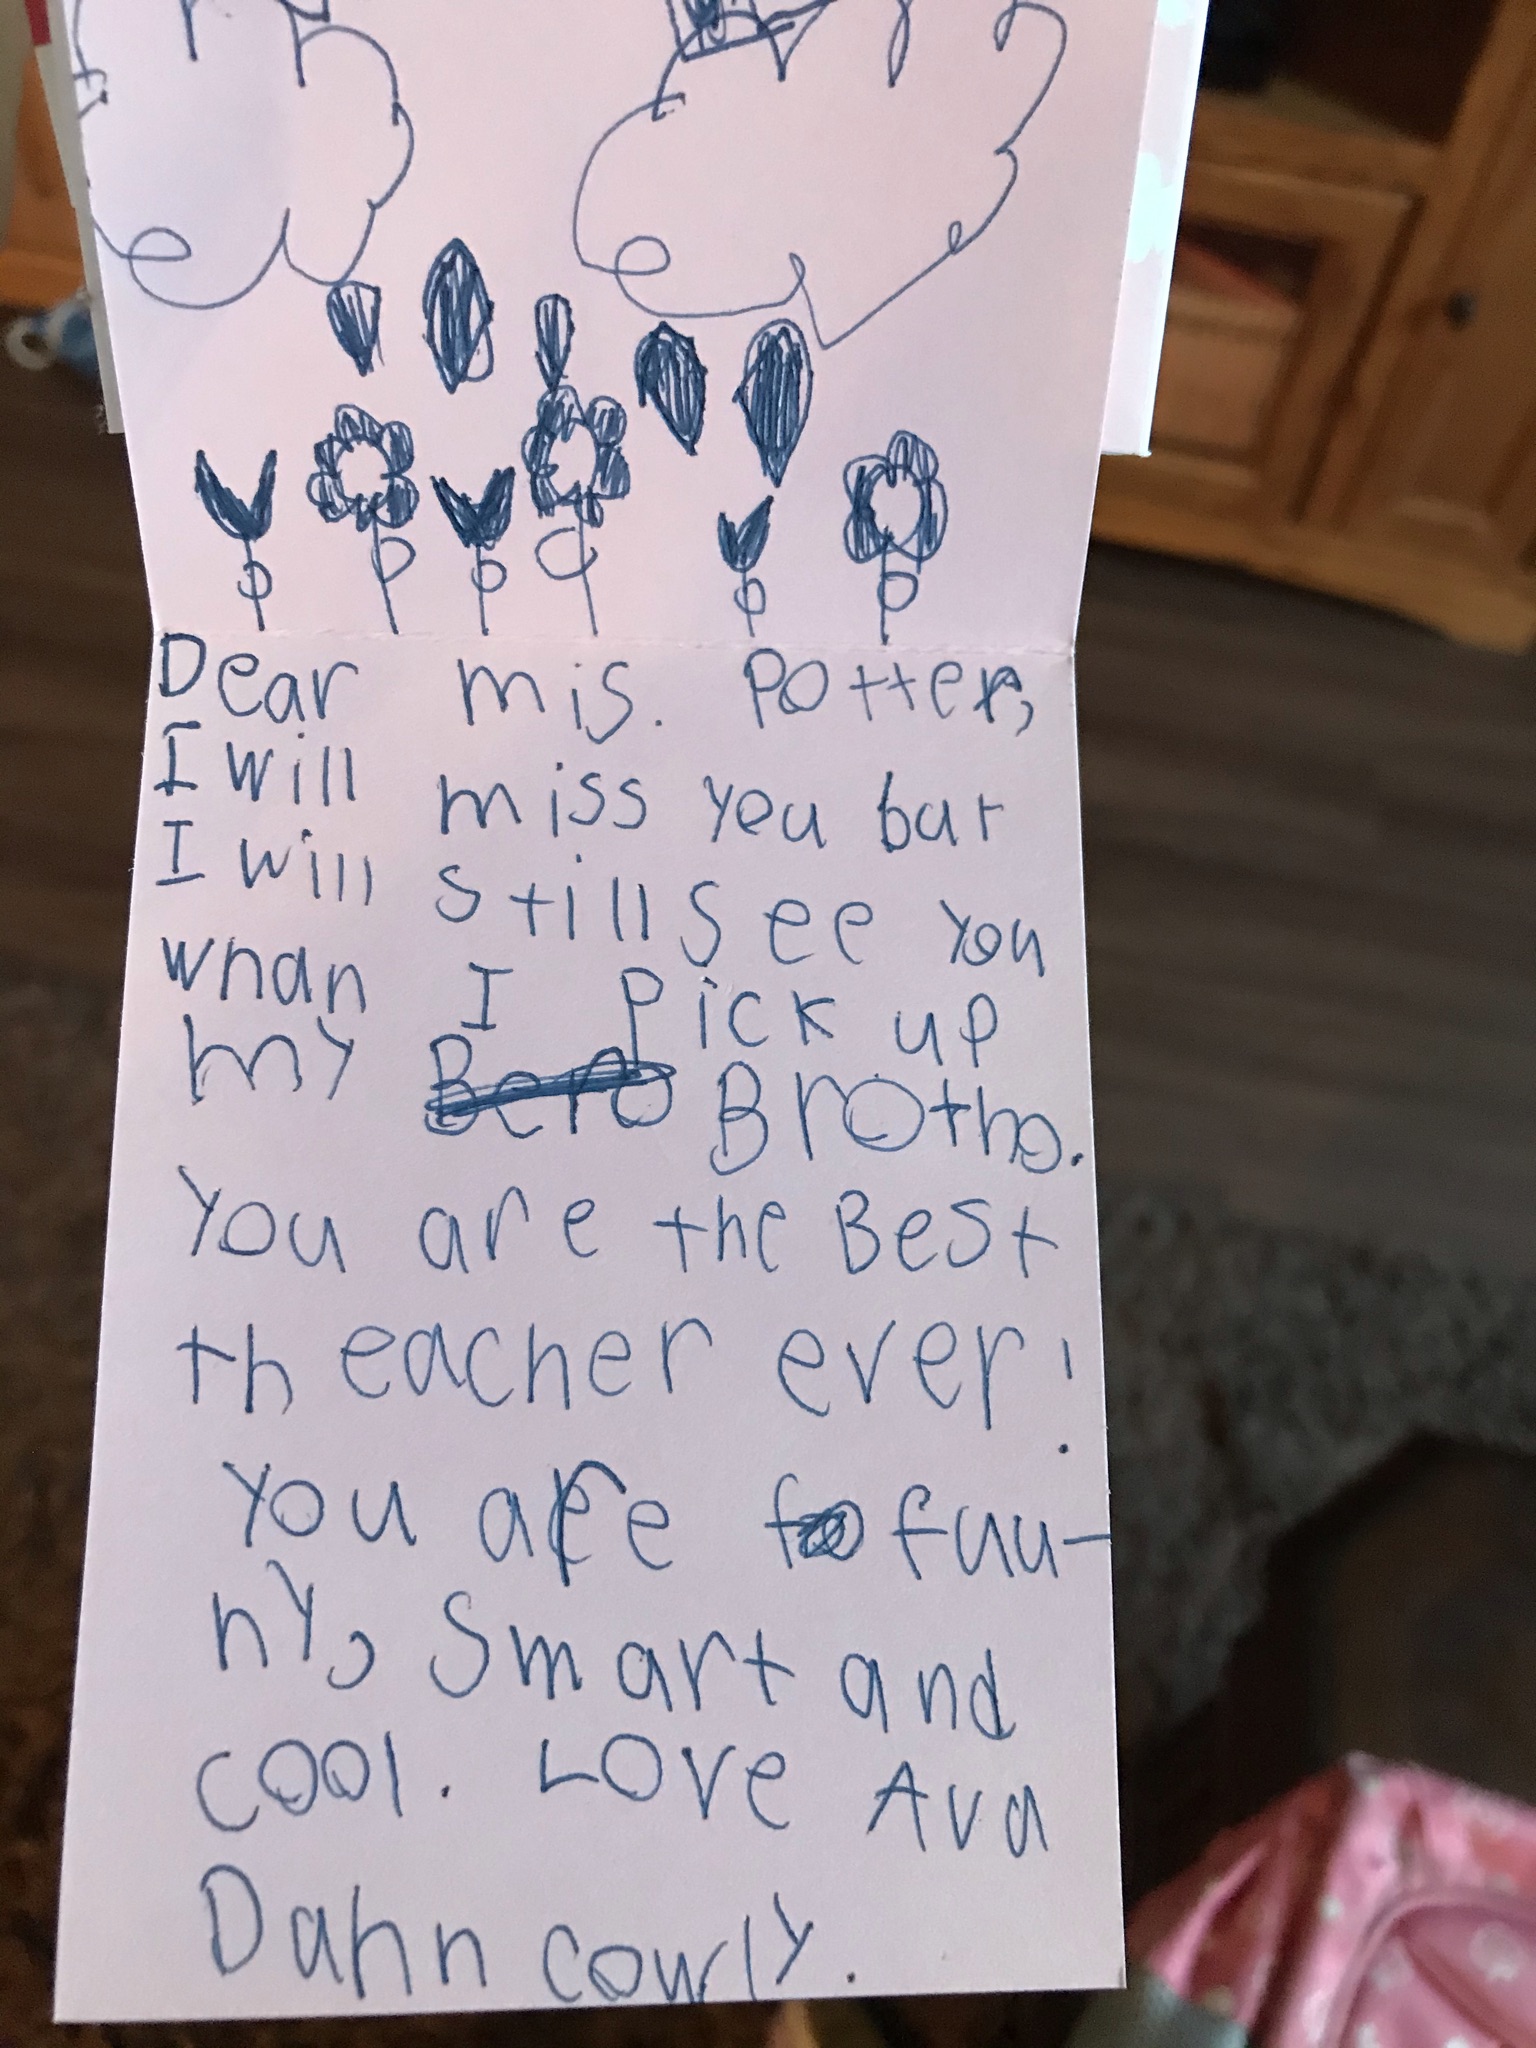 Dear mis. Potter,
I will miss you but
I will still see you
whan I Pick up
my Bero Brotho.
You are the Best
theacher ever!
You are fo fuu-
ny, Smart and
cool. Love Ava
Dahn cowly.